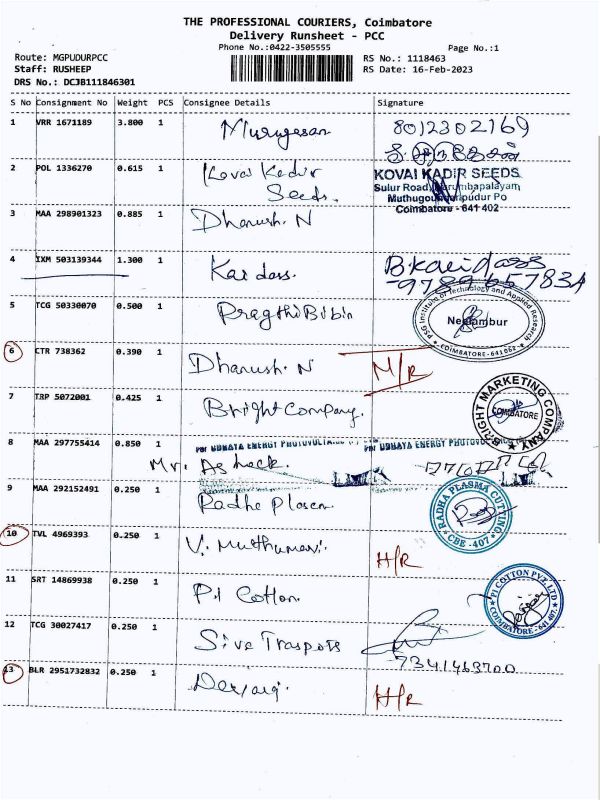 THE PROFESSIONAL COURIERS, Coimbatore
Delivery Runsheet - PCC
Phone No.:0422-3505555
Page No.:1
Route: MGPUDURPCC
RS No.: 1118463
Staff: RUSHEEP
RS Date: 16-Feb-2023
DRS No.: DCJB111846301
S No Consignment No Weight PCS Consignee Details Signature
1 VRR 1671189 3.800 1 Murugesan 8012302169
2 POL 1336270 0.615 1 Kovai Kadir Seeds.
KOVAI KADIR SEEDS
Sulur Road, Karumbapalayam,
Muthugoundanpudur Po
Coimbatore - 641 402
3 MAA 298901323 0.885 1 Dhanush. N
4 IXM 503139344 1.300 1 Kaidass.
5 TCG 50330070 0.500 1 Pragthi Bibin
PSG Institute of Technology and Applied Research
Neelambur
COIMBATORE-641062
6 CTR 738362 0.390 1 Dhanush N
7 TRP 5072001 0.425 1 Bright Company.
BRIGHT MARKETING COMPANY
COIMBATORE
8 MAA 297755414 0.850 1 Mr. Ashock.
9 MAA 292152491 0.250 1 Radhe Plasma
RADHA PLASMA CUTTING
CBE-407
10 TVL 4969393 0.250 1 V. Muthumani. H/R
11 SRT 14869938 0.250 1 P.I Cotton.
PI COTTON PVT. LTD
COIMBATORE-641 407.
12 TCG 30027417 0.250 1 Siva Traspots
7341463700
13 BLR 2951732832 0.250 1 H/R